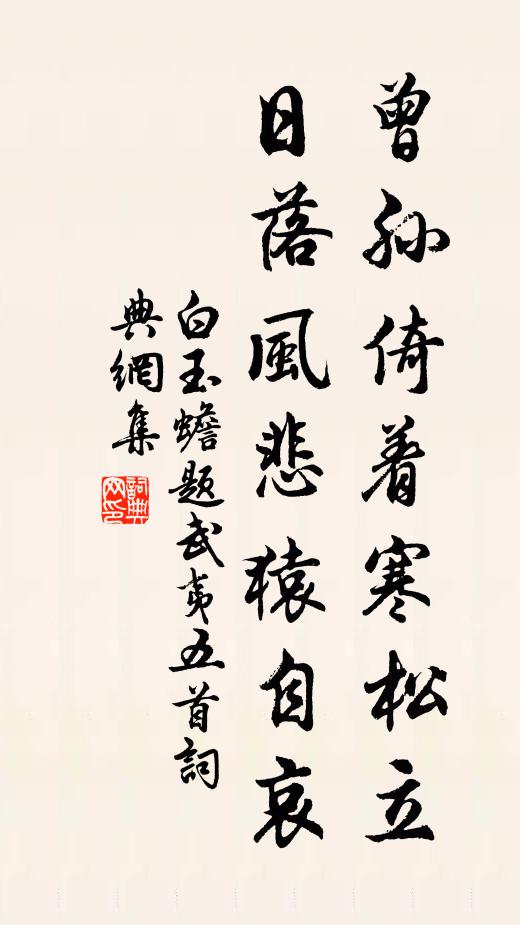 曾孫倚着寒松立
日落風悲猿自哀
白玉蟾題武夷五首詞
典網集
詞典網印